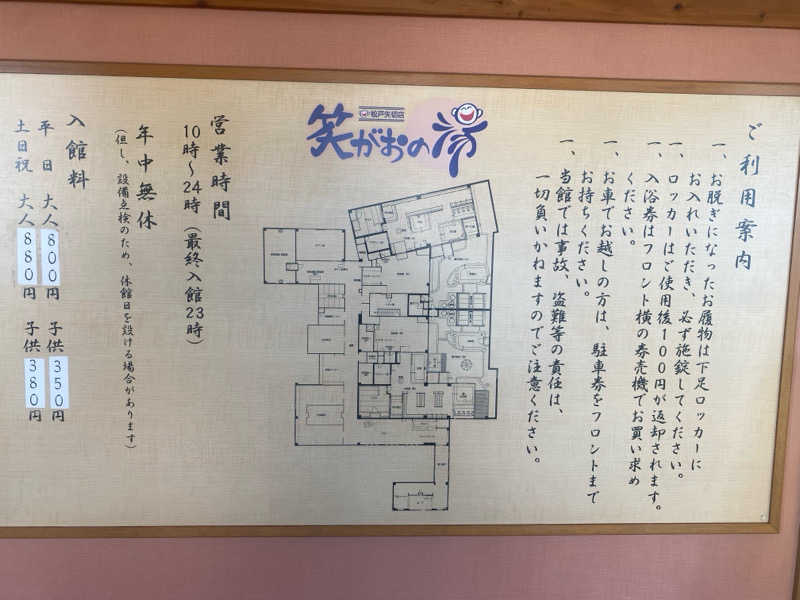 ご利用案内
一、お脱ぎになったお履物は下足ロッカーに
お入れいただき、必ず施錠してください。
一、ロッカーはご使用後100円が返却されます。
一、入浴券はフロント横の券売機でお買い求め
ください。
一、お車でお越しの方は、駐車券をフロントまで
お持ちください。
一、当館では事故、盗難等の責任は、
一切負いかねますのでご注意ください。
松戸矢切店
笑がおの湯
営業時間
10時〜24時(最終入館23時)
年中無休
(但し、設備点検のため、休館日を設ける場合があります)
入館料
平日 大人800円 子供350円
土日祝 大人880円 子供380円